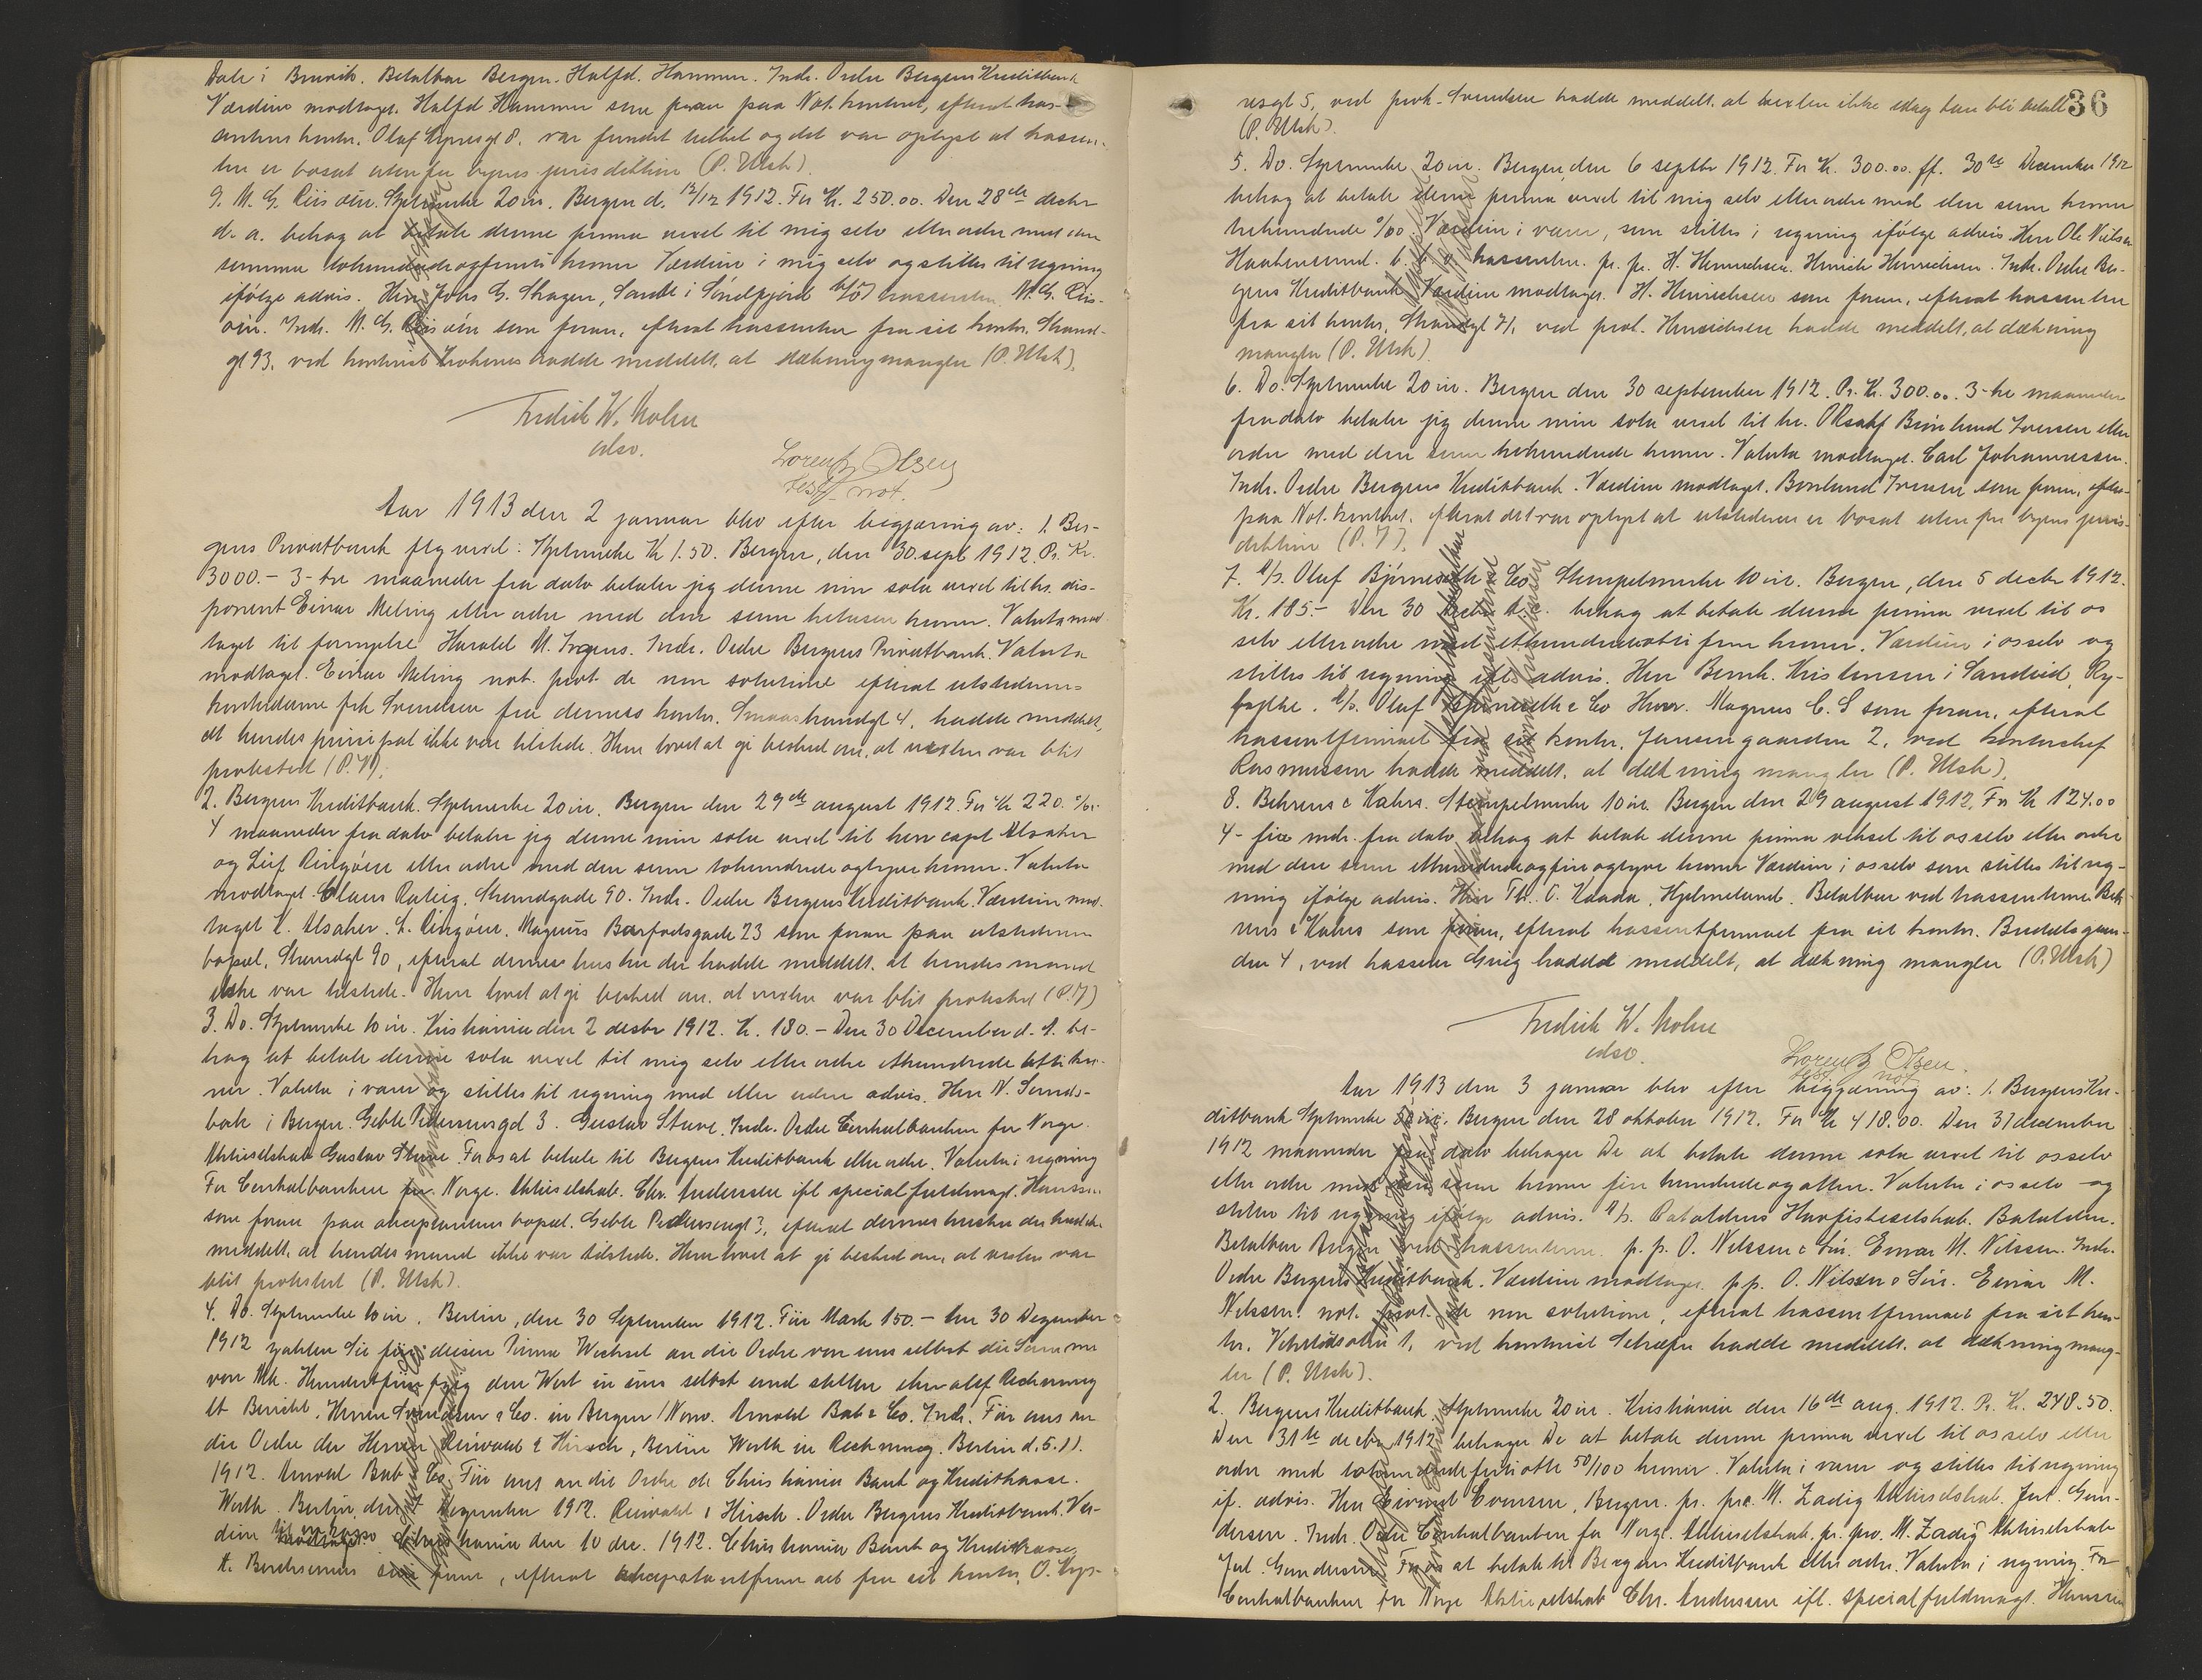 Dale i Bruvik. Betalbar Bergen. Halfd. Hammer. Indr. Ordre Bergens Kreditbank
Værdien modtaget. Halfd Hammer som foran paa Not. kontoret, efterat tras-
sentens kontor, Olaf Kyrresgt 8. var fundet lukket og det var oplyst at trassen-
ten er bosat utenfor byens jurisdiktion (P. Utsk).
9. M. G. Riisøen. Stplmerke 20 øre. Bergen d. 12/12 1912. For Kr. 250.00. Den 28de decbr
d. a. behag at betale denne prima vexel til mig selv eller ordre med den
summa tohundredeogfemti kroner Værdien i mig selv og stilles til regning
ifølge advis. Herr Johs G. Skagen, Sande i Søndfjord trassenten. M. G. Riis-
øen. Indr. M. G. Riisøen som foran, efterat trassenten fra sit kontor, Strand-
gt 93, ved kontorist hadde meddelt, at dækning mangler (P. Utsk).
Fredrik W. Mohn
edsv.
Lorentz Olsen
test. not.
Aar 1913 den 2 januar blev efter begjæring av: 1. Ber-
gens Privatbank flg vexel: Stplmerke Kr 1.50. Bergen, den 30. sept 1912. Pr. Kr.
3000.- 3-tre maaneder fra dato betaler jeg denne min sola vexel til hr. dis-
ponent Einar Meling eller ordre med den sum tretusen kroner. Valuta mod-
taget til fornyelse. Harald M. Indr. Ordre Bergens Privatbank. Valuta
modtaget. Einar Meling not. prot. de non solutione efterat utstederens
kontordame frk Svendsen fra dennes kontor, Smaastrandgt 4, hadde meddelt,
at hendes principal ikke var tilstede. Hun lovet at gi besked om, at vexlen var blit
protestert (P. )
2. Bergens Kreditbank. Stplmerke 20 øre. Bergen den 29de august 1912. For Kr 220.
4 maaneder fra dato betaler jeg denne min sola vexel til herr capt Alsaker
og Leif Ringøen eller ordre med den sum tohundrede ogtyve kroner. Valuta
modtaget. Claus Strandgade 90. Indr. Ordre Bergens Kreditbank. Værdien mod-
taget K. Alsaker. L. Ringøen. Magnus Barfodsgade 23 som foran paa utstederens
bopæl, Strandgt 90, efterat dennes hustru der hadde meddelt, at hendes mand
ikke var tilstede. Hun lovet at gi besked om, at vexlen var blit protestert (P. )
3. Do. Stplmerke 10 øre. Kristiania den 2 decbr 1912. Kr. 180.- Den 30 December d. A. be-
hag at betale denne sola vexel til mig selv eller ordre ethundrede otti kro-
ner. Valuta i varer og stilles til regning med eller uden advis. Herr N. Sunds-
bak i Bergen. Geble Pedersensgd 3. Gustav Stuve. Indr. Ordre Centralbanken for Norge.
Aktieselskab Gustav Stuve. For os at betale til Bergens Kreditbank eller ordre. Valuta i regning
For Centralbanken for Norge. Aktieselskab. Chr. Anderssen ifl specialfuldmagt. Hanssen
som foran paa akceptantens bopæl, Geble Pedersensgt 3, efterat dennes hustru der hadde
meddelt, at hendes mand ikke var tilstede. Hun lovet at gi besked om, at vexlen var
blit protestert (P. Utsk).
4. Do. Stplmerke 10 øre. Berlin, den 30 September 1912. Für Mark 150.- Am 30 Dezember
1912 zahlen Sie für diesen Prima Wechsel an die Ordre von uns selbst die Summe
von Mk. Hundertfünfzig den Wert in uns selbst und stellen ihn auf Rechnung
lt Bericht. Herren Svendsen & Co. in Bergen / Norw. Arnold Bab & Co. Indr. Für uns an
die Ordre der Herren Reiwald & Hirsch, Berlin Werth in Rechnung. Berlin d. 5. 11.
1912. Arnold Bab & Co. Für uns an die Ordre de Christiania Bank og Kreditkasse.
Werth. Berlin, den 7 Dezember 1912. Reiwald & Hirsch. Ordre Bergens Kreditbank. Vær-
dien Christiania den 10 dec. 1912. Christiania Bank og Kreditkasse,
som foran, efterat akceptantfirmaet fra sit kontor, O. Kyr-
36
resgt 5, ved prok. Svendsen hadde meddelt, at vexlen ikke idag kan bli betalt
(P. Utsk).
5. Do. Stplmerke 20 øre. Bergen, den 6 septbr 1912. For Kr. 300.00. ff. 30te December 1912
behag at betale denne prima vexel til mig selv eller ordre med den sum kroner
trehundrede 0/00. Værdien i varer, som stilles i regning ifølge advis. Herr Ole Nielsen
Haakonsund. trassenten. pr. pr. H. Henrichsen. Hinrich Henrichsen. Indr. Ordre Ber-
gens Kreditbank Værdien modtaget. H. Hinrichsen som foran, efterat trassenten
fra sit kontor, Strandgt 71, ved prok. Henrichsen hadde meddelt, at dækning
mangler (P. Utsk).
6. Do. Stplmerke 20 øre. Bergen den 30 september 1912. Pr. Kr. 300.00. 3-tre maaneder
fra dato betaler jeg denne min sola vexel til hr. Brønlund Iversen eller
ordre med den sum trehundrede kroner. Valuta modtaget. Carl Johannessen.
Indr. Ordre Bergens Kreditbank. Værdien modtaget. Brønlund Iversen som foran, efter-
paa Not. kontoret, efterat det var oplyst at utstederen er bosat uten for byens juris-
diktion (P. ).
7. A/s. Olaf Bjørnseth & Co Stempelmerke 10 øre. Bergen, den 5 decbr 1912.
Kr. 185.- Den 30 decbr behag at betale denne prima vexel til os
selv eller ordre med ethundredeotti fem kroner. Værdien i os selv og
stilles til regning ifl advis. Herr Bernh. Kristensen i Sandeid, Ry-
fylke. A/s. Olaf Bjørnseth & Co Magnus C. S som foran, efterat
trassentfirmaet fra sit kontor, Jansengaarden 2, ved kontorchef
Rasmussen hadde meddelt, at dækning mangler (P. Utsk).
8. Behrens & Kahrs. Stempelmerke 10 øre. Bergen den 29 august 1912. For Kr 124.00
4- fire mdr. fra dato behag at betale denne prima veksel til os selv eller ordre
med den sum ethundredeogfireogtyve kroner Værdien i os selv som stilles til reg-
ning ifølge advis. Herr Th. T. Kaada, Hjelmeland. Betalbar ved trassenterne. Beh-
rens & Kahrs som foran, efterat trassentfirmaet fra sit kontor. Buddetsgaar-
den 4, ved kasserer Grieg hadde meddelt, at dækning mangler (P. Utsk)
Fredrik W. Mohn
edsv.
Lorentz Olsen.
test. not
Aar 1913 den 3 januar blev efter begjæring av: 1. Bergens Kre-
ditbank Stplmerke øre. Bergen den 28 oktober 1912. For Kr 418.00. Den 31 december
1912 maaneder fra dato behager De at betale denne sola vexel til os selv
eller ordre med den sum kroner fire hundrede og atten. Valuta i os selv og
stilles til regning ifølge advis. A/s. Bataldens Havfiskeselskab. Batalden.
Betalbar Bergen ved trassenterne. p. p. O. Nilssen & Søn. Einar M. Nilssen. Indr.
Ordre Bergens Kreditbank. Værdien modtaget. pp. O. Nilssen & Søn. Einar M.
Nilssen. not. prot. de non solutione, efterat trassentfirmaet fra sit kon-
tor, 1, ved kontorist hadde meddelt, at dækning mang-
ler (P. Utsk).
2. Bergens Kreditbank. Stplmerke 20 øre. Kristiania den 16de aug. 1912. Pr. Kr. 248.50.
Den 31te decbr 1912 behager De at betale denne prima vexel til os selv eller
ordre med tohundrede førtiotte 50/100 kroner. Valuta i varer og stilles til regning
if. advis. Herr Eivind Evensen, Bergen. pr. pro. M. Zadig Aktieselskab. Jul. Gun-
dersen. Indr. Ordre Centralbanken for Norge. Aktieselskab, pr. pro. M. Zadig Aktieselskab
Jul. Gundersen. For os at betale til Bergens Kreditbank eller ordre. Valuta i regning. For
Centralbanken for Norge Aktieselskab Chr. Anderssen ifl. specialfuldmagt. Hanssen